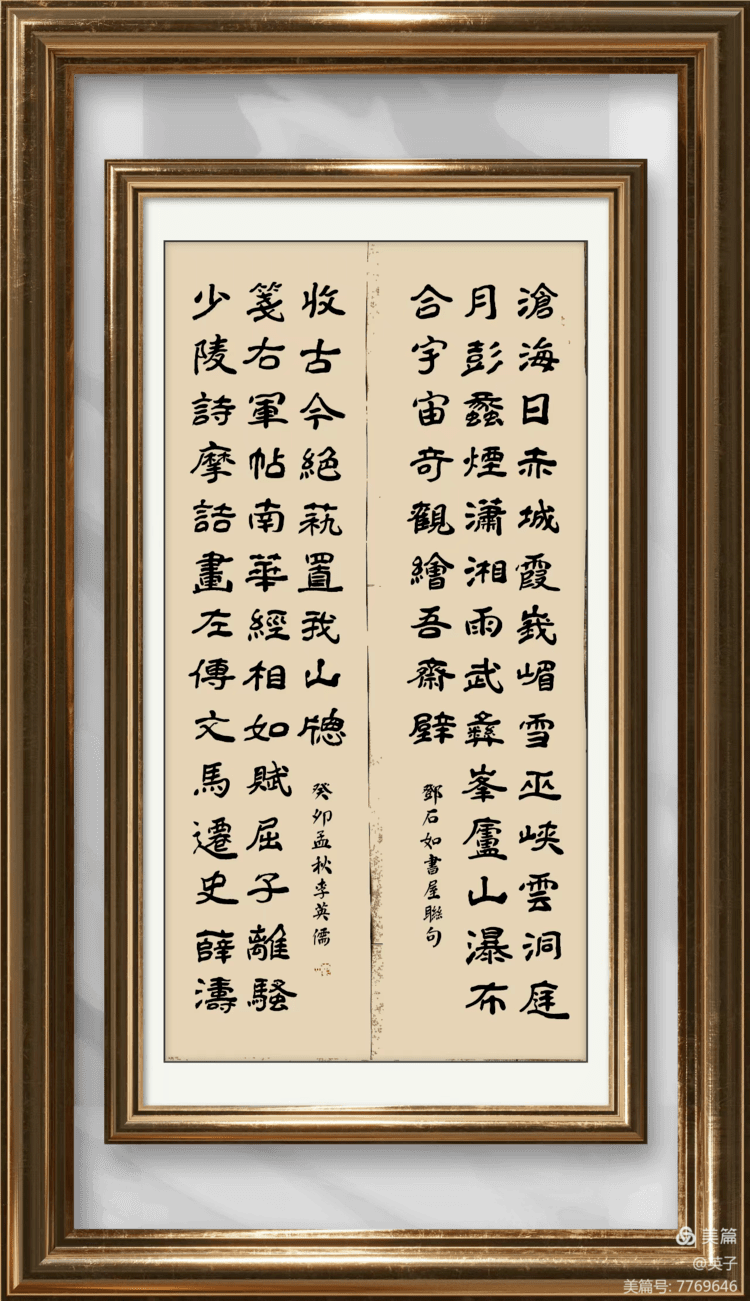 滄海日赤城霞峩嵋雪巫峽雲洞庭
月彭蠡煙瀟湘雨武彝峯廬山瀑布
合宇宙奇觀繪吾齋壁
鄧石如書屋聯句
少陵詩摩詰畫左傳文馬遷史薛濤
箋右軍帖南華經相如賦屈子離騷
收古今絕蓺置我山牕
癸卯孟秋李英儒
美篇
@英子
美篇号: 7769646